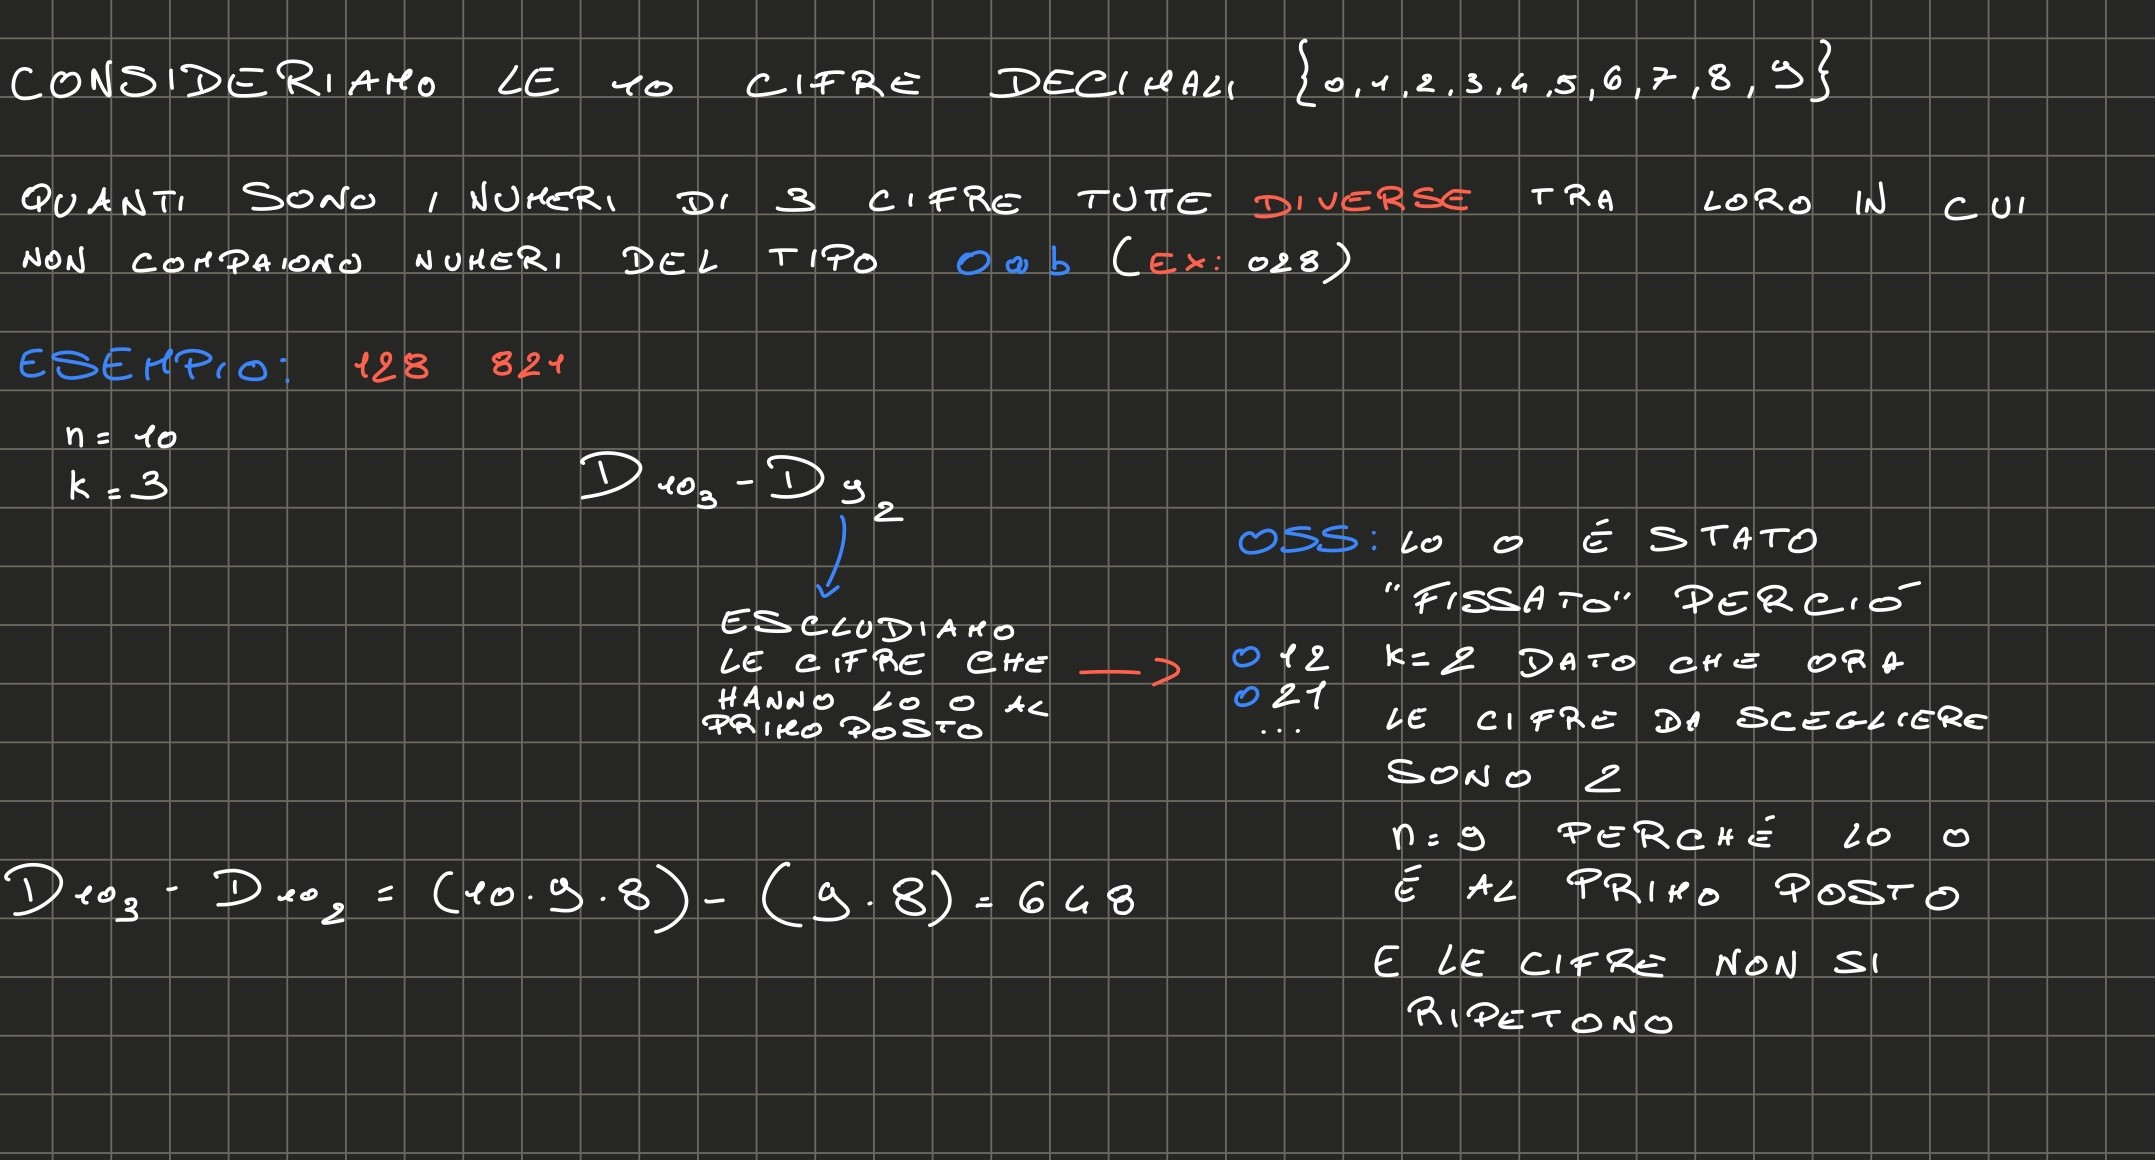 CONSIDERIAMO LE 10 CIFRE DECIMALI {0,1,2,3,4,5,6,7,8,9}
QUANTI SONO I NUMERI DI 3 CIFRE TUTTE DIVERSE TRA LORO IN CUI
NON COMPAIONO NUMERI DEL TIPO 0ab (EX: 028)
ESEMPIO: 128 821
n = 10
k = 3
D10₃ - D9₂
ESCLUDIAMO
LE CIFRE CHE
HANNO LO 0 AL
PRIMO POSTO
012
021
...
OSS: LO 0 É STATO
"FISSATO" PERCIÓ
k = 2 DATO CHE ORA
LE CIFRE DA SCEGLIERE
SONO 2
n = 9 PERCHÉ LO 0
É AL PRIMO POSTO
E LE CIFRE NON SI
RIPETONO
D10₃ - D10₂ = (10·9·8) - (9·8) = 648